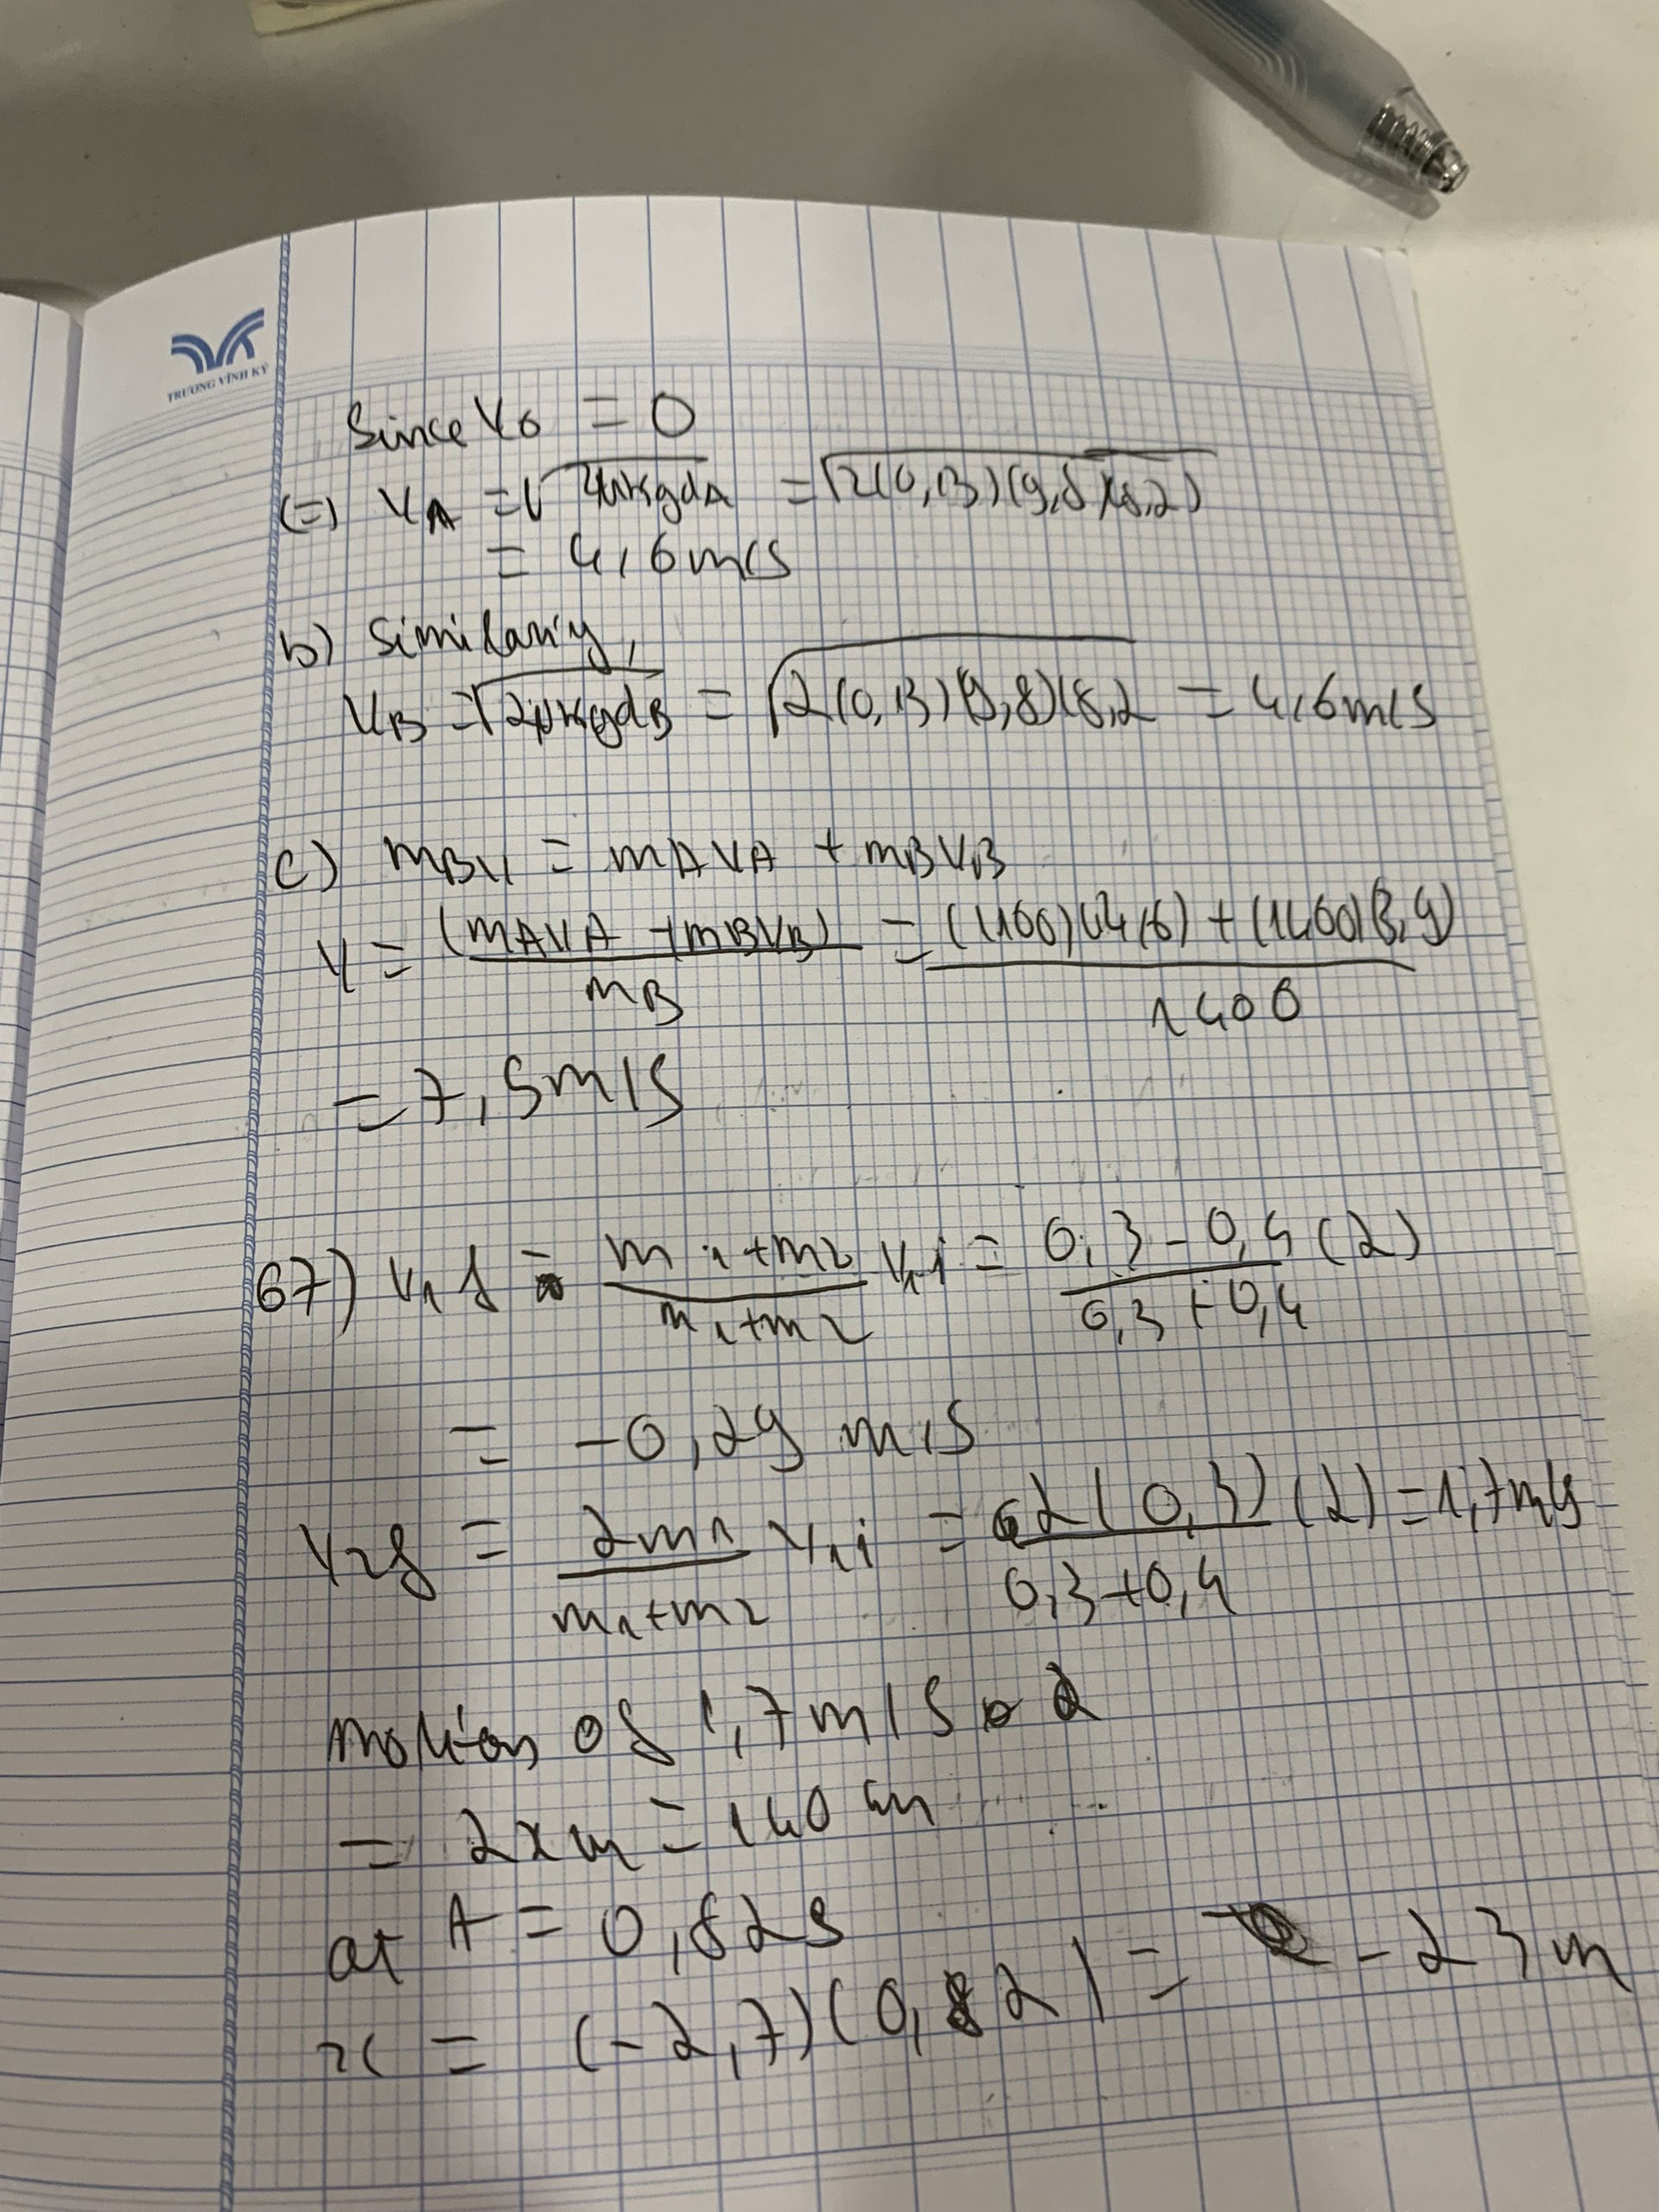 TRƯƠNG VĨNH KÝ
Since V0 = 0
(=) VA = √2μkgdA = √2(0,13)(9,8)(8,2)
= 4,6 m/s
b) Similariy,
VB = √2μkgdB = √2(0,13)(9,8)(8,2 = 4,6 m/s
c) mBV = mAVA + mBVB
V = (mAVA + mBVB) / mB = (1100)(4,6) + (1400)(3,9) / 1400
= 7,5 m/s
67) V1f = m1+m2 / m1+m2 V1i = 0,3 - 0,4 / 0,3 + 0,4 (2)
= -0,29 m/s
V2f = 2m1 / m1+m2 V1i = 2(0,3) / 0,3+0,4 (2) = 1,7 m/s
motion of 1,7 m/s 2
= 2xm = 140 cm
at t = 0,82s
x = (-2,7)(0,82) = -23 m